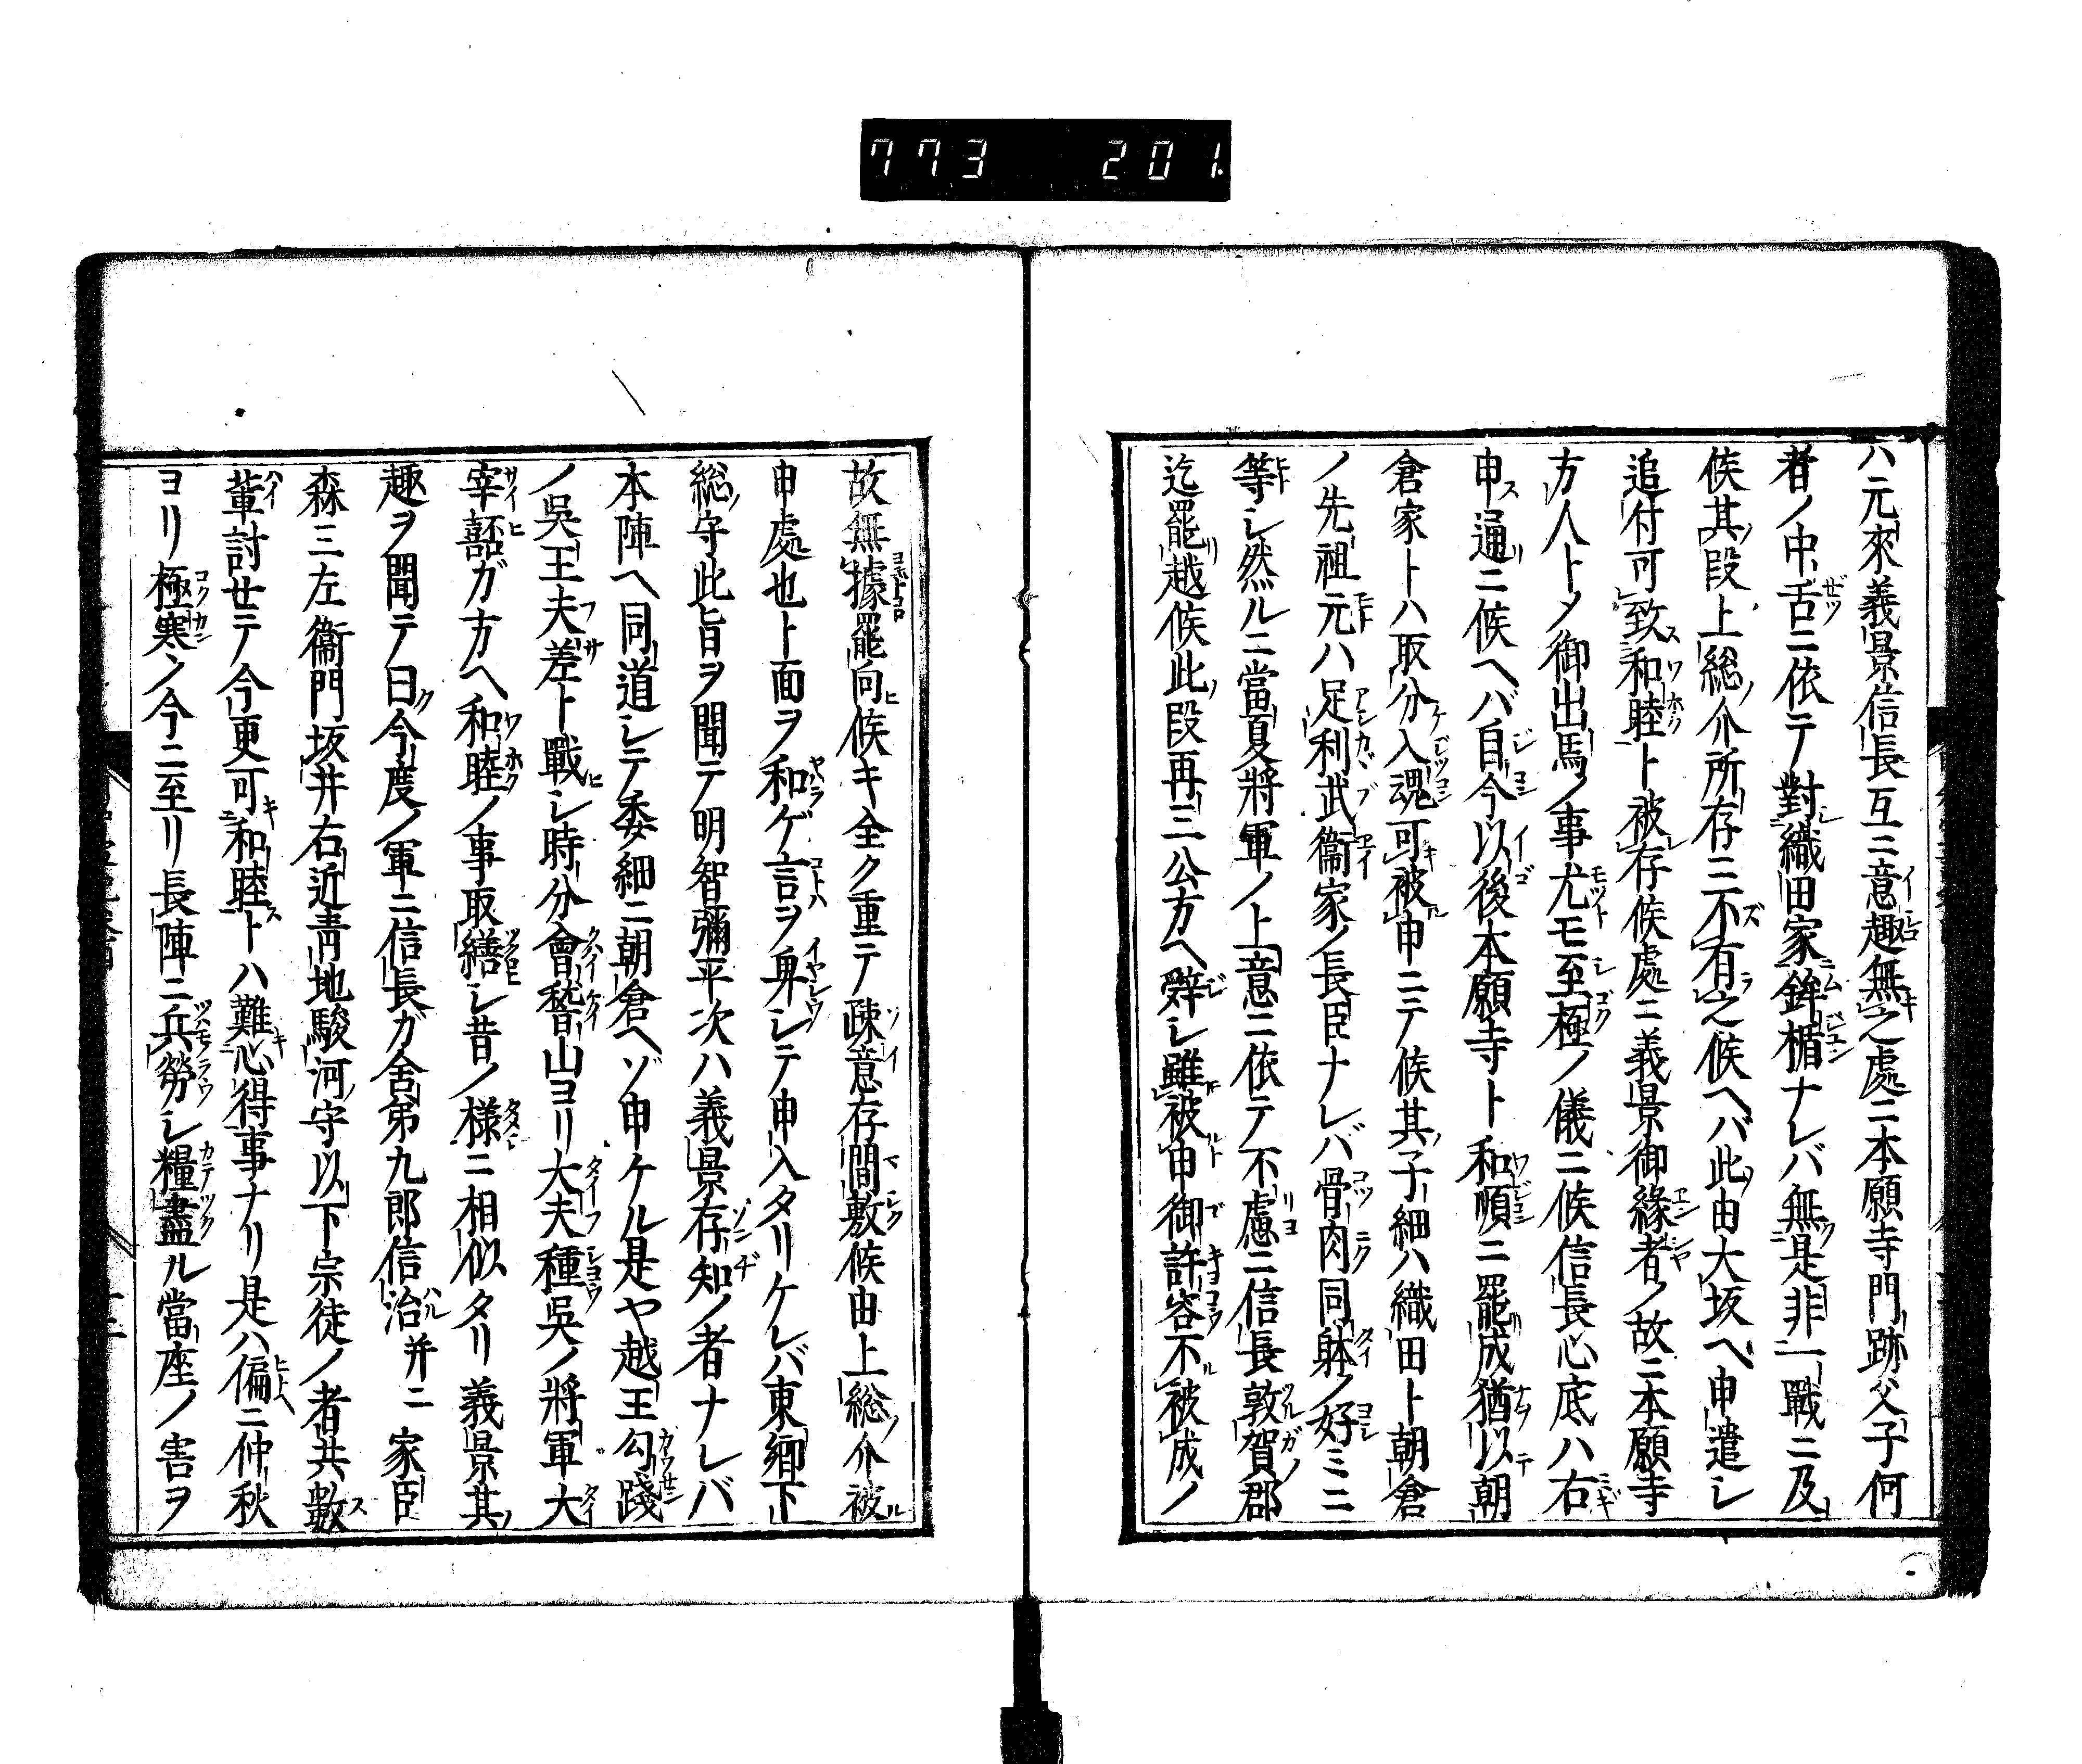 773 201.
ハ元來義景信長互ニ意趣無之處ニ本願寺門跡父子何
者ノ中舌ニ依テ對織田家鉾楯ナレバ無是非一戰ニ及
候其段上総介所存ニ不有之候ヘバ此由大坂ヘ申遣シ
追付可致和睦ト被存候處ニ義景御緣者ノ故ニ本願寺
方人トメ御出馬ノ事尤モ至極ノ儀ニ候信長心底ハ右
申通ニ候ヘバ自今以後本願寺ト和順ニ罷成猶以朝
倉家トハ取分入魂可被申ニテ候其子細ハ織田ト朝倉
ノ先祖元ハ足利武衞家ノ長臣ナレバ骨肉同躰ノ好ミニ
等シ然ルニ當夏將軍ノ上意ニ依テ不慮ニ信長敦賀郡
迄罷越候此段再三公方ヘ辭シ雖被申御許容不被成ノ
故無據罷向候キ全ク重テ疎意存間敷候由上総介被
申處也ト面ヲ和ゲ言ヲ卑シテ申入タリケレバ東郷下
総守此旨ヲ聞テ明智彌平次ハ義景存知ノ者ナレバ
本陣ヘ同道シテ委細ニ朝倉ヘゾ申ケル是ヤ越王勾踐
ノ吳王夫差ト戰シ時分會稽山ヨリ大夫種吳ノ將軍大
宰嚭ガ方ヘ和睦ノ事取繕シ昔ノ樣ニ相似タリ義景其
趣ヲ聞テ曰今度ノ軍ニ信長ガ舍弟九郎信治并ニ家臣
森三左衞門坂井右近靑地駿河守以下宗徒ノ者共數
輩討せテ今更可和睦トハ難心得事ナリ是ハ偏ニ仲秋
ヨリ極寒ノ今ニ至リ長陣ニ兵勞シ糧盡ル當座ノ害ヲ